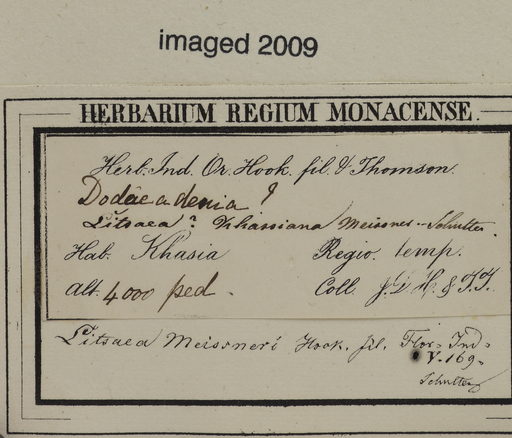 imaged 2009
HERBARIUM REGIUM MONACENSE.
Herb. Ind. Or. Hook. fil. & Thomson.
Dodecadenia ?
Litsaea ? Khassiana Meissner - Schutter
Hab. Khasia Regio. temp.
Alt. 4000 ped. Coll. J. D. H. & T. T.
Litsaea Meissneri Hook. fil. Flor. Ind.
V. 169.